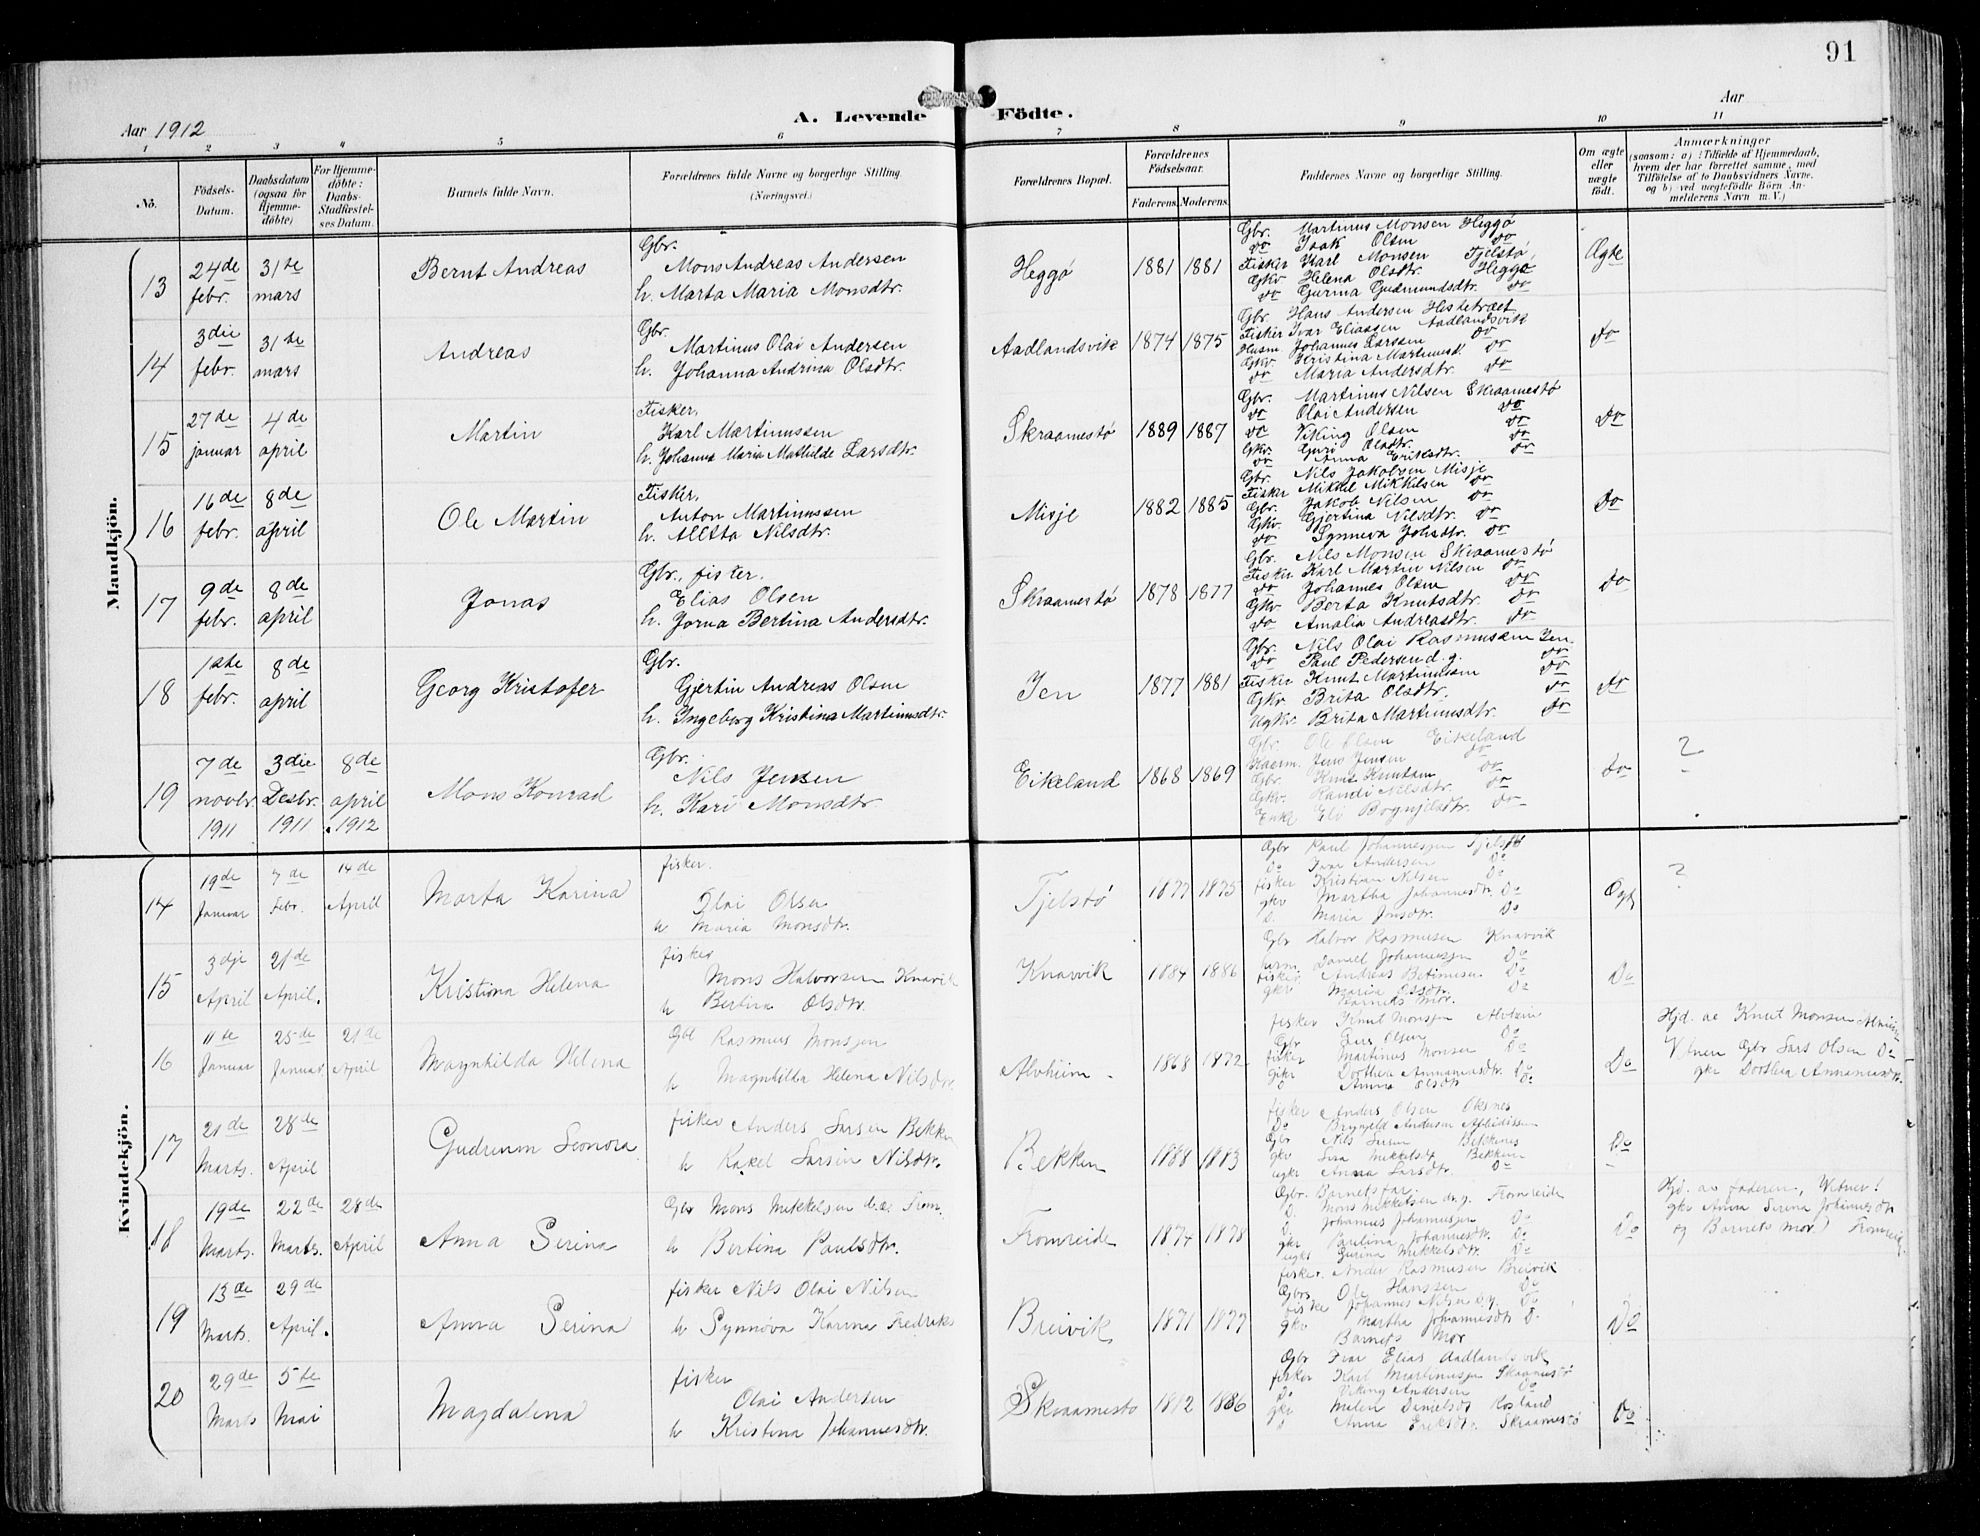 91
A. Levende Födte.
Aar 1912
Aar
1 2 3 4 5 6 7 8 9 10 11
No.
Födsels-Datum.
Daabsdatum (ogsaa for Hjemme-döbte)
For Hjemme-döbte: Daabs-Stadfæstel-ses Datum.
Barnets fulde Navn.
Forældrenes fulde Navne og borgerlige Stilling (Næringsvei.)
Forældrenes Bopæl.
Forældrenes Födselsaar.
Faderens Moderens
Faddernes Navne og borgerlige Stilling.
Om ægte eller uægte födt.
Anmærkninger
(saasom: a) i Tilfælde af Hjemmedaab, hvem der har forrettet samme, med Tilföielse af to Daabsvidners Navne, og b) ved uægtefödte Börn An-melderens Navn m. V.)
Mandkjön.
13
24de febr.
31te mars
Bernt Andreas
Gbr.
Mons Andreas Andersen
h. Marta Maria Monsdtr.
Heggö
1881 1881
Gbr. Martinus Monsen Heggö
do Isak Olsen do
Fisker Karl Monsen Tjelstö,
Gkv Helena Olsdtr. Heggö
do Gurina Gudmundsdtr. do
Ægte
14
3die febr.
31te mars
Andreas
Gbr.
Martinus Olai Andersen
h. Johanna Andrina Olsdtr.
Aadlandsvik
1874 1875
Gbr. Hans Andersen Hestetræet
Fisker Ivar Eliassen Aadlandsvik
Husm. Johannes Larssen do
Gkv. Kristina Martinusd. do
do Maria Andersdtr. do
do
15
27de januar
4de april
Martin
Fisker,
Karl Martinussen
h. Johanna Maria Mathilde Larsdtr.
Skraamestö
1889 1887
Gbr. Martinus Nilsen Skraamestö
do Olai Andersen do
do Viking Olsen do
Gkv. Guri Olsdtr. do
do Anna Eriksdtr. do
do
16
16de febr.
8de april
Ole Martin
Fisker,
Anton Martinussen
h. Alltta Nilsdtr.
Misje
1882 1885
Gbr. Nils Jakobsen Misje
Fisker Mikkel Mikkelsen do
Gbr. Jakob Nilsen do
Gkv. Gjertina Nilsdtr. do
do Synneva Johsdtr. do
do
17
9de febr.
8de april
Jonas
Gbr., fisker.
Elias Olsen
h. Jorna Bertina Andersdtr.
Skraamestö
1878 1877
Gbr. Nils Monsen Skraamestö
Fisker Karl Martin Nilsen do
do Johannes Olsen do
Gkv Berta Knutsdtr. do
do Amalia Andreasdtr. do
do
18
1ste febr.
8de april
Georg Kristofer
Gbr.
Gjertin Andreas Olsen
h. Ingeborg Kristina Martinusdtr.
Jen
1877 1881
Gbr. Nils Olai Rasmussen Jen
do Paul Pedersen d. y. do
Fisker Knut Martinussen do
Gkv Brita Olsdtr. do
Ugkv. Brita Martinusdtr. do
do
19
7de novbr 1911
3die Desbr. 1911
8de april 1912
Mons Konrad
Gbr.
Nils Jensen
h. Kari Monsdtr.
Eikeland
1868 1869
Gbr. Ole Olsen Eikeland
Jens Jensen do
Gbr. Knut Knutsen do
Gkv. Randi Nilsdtr. do
Enke Eli do
do
?
Kvindekjön.
14
19de Januar
7de Febr.
14de April
Marta Karina
fisker.
Olai Olsen
h Maria Monsdtr.
Tjelstö
1877 1875
Gbr Paul Johannessen Tjelstö
Do Ivar Andersen Do
fisker Kristian Nilsen Do
gkv Martha Johannesdtr. Do
D. Maria Do
Ægt
?
15
3dje April
21de April.
Kristina Helena
fisker
Mons Halvorsen Knarvik
h Bertina Olsdtr.
Knarvik
1884 1886
Gbr Halvor Rasmusen Knarvik
Daniel Johannessen Do
fisker Andreas Do
gkv Maria Olsdtr. Do
Barnets Mor.
Do
16
11te Januar
25de Januar.
21de April
Magnhilda Helena
Gbr Rasmus Monssen
h Magnhilda Helena Nilsdtr.
Alvheim
1868 1872
fisker Knut Monssen Alvheim
Gbr Lars Olsen Do
fisker Martinus Monsen Do
gkv Dorthea Do
D Anna Olsdtr Do
Do
Hjd. av Knut Monsen Alvheim
Vitner Gbr Lars Olsen Do
gkv Dorthea
17
21de Marts.
28de April
Gudrunn Leonora
fisker Anders Larsen Bekken
h Rakel Larsin Nilsdtr.
Bekken
1888 1883
fisker Anders Olsen Oksnes
Do Brynjeld Andersen
Gbr Nils Larsen
gkv Bekken
ugkv Anna Larsdtr. Do
Do
18
19de Marts.
22de Marts.
28de April
Anna Serina
Gbr Mons Mikkelsen d.æ. From.
h Bertina Paulsdtr.
Fromreide
1874 1878
Gbr. Barnets far.
D. Mons Mikkelsen d.y. Fromreide
D. Johannes Johannessen Do
gkv Paulina Johannesdtr. Do
ugkv Gurina Mikkelsdtr. Do
Do
Hjd. av faderen, Vitner:
gkv Anna Serina Johannesdtr
og Barnets mor. Fromreid.
19
13de Marts.
29de April.
Anna Serina
fisker Nils Olai Nilsen
h Synnöva Karina Fredriks
Breivik
1871 1877
fisker. Ander Rasmusen Breivik
Gbr Ole Hanssen Do
fisker Johannes Nilsen d.y. Do
gkv Martha Johannesdtr D.
Barnets Mor
Do
20
29de Marts
5te Mai
Magdalena
fisker
Olai Andersen
h Kristina Johannesdtr.
Skraamestö
1882 1886
Gbr Ivar Elias Aadlandsvik
fisker Karl Martinussen Skraamestö
Do Viking Andersen Do
gkv Malen Danielsdtr Rosland
D Anna Eriksdtr. Skraamestö
Do